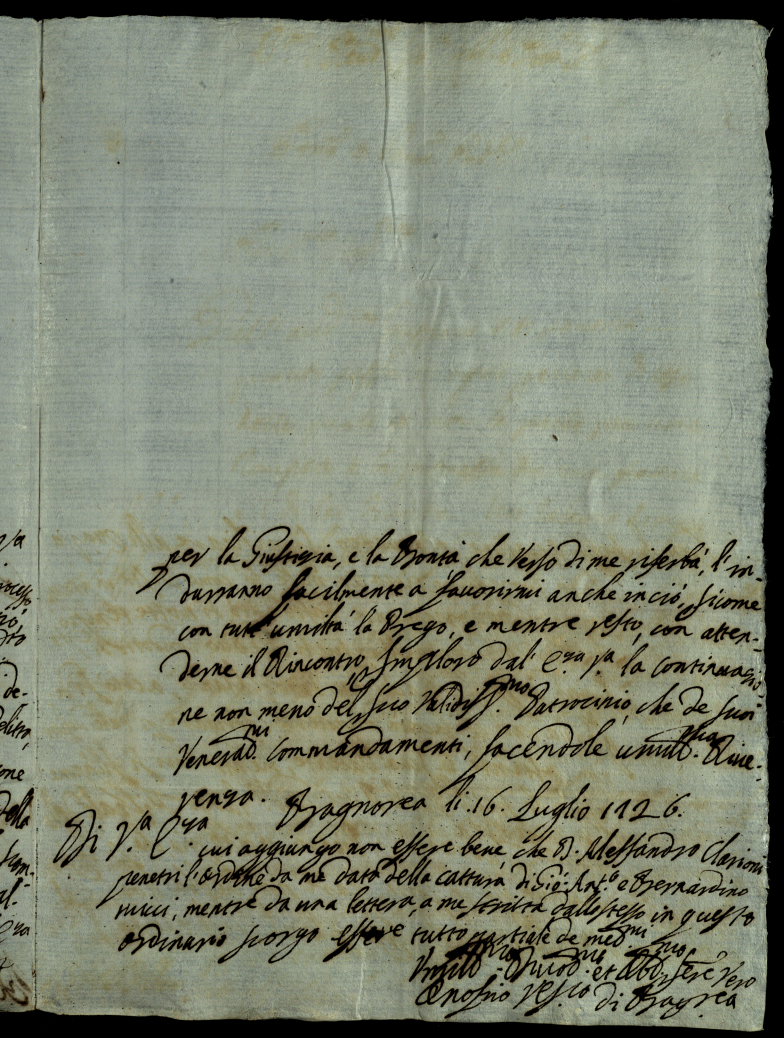 per la Giustizia, e la Bontà che verso di me riserba, l'in-
durranno facilmente a favorirmi anche in ciò, sicome
con tutt'umiltà la Prego, e mentre resto, con atten-
derne il Rincontro, Imploro dal' E.za V.a la continuazio-
ne non meno del suo Validiss.mo Patrocinio, che de suoi
Venerad.mi commandamenti, facendole umill.ma Rive-
renza. Bagnorea li 16. Luglio 1726.
Di V.a E.za
cui aggiungo non essere bene che D. Alessandro
penetri l'ordine da me dato della cattura di Gio: Ant.o e Bernardino
mentre da una lettera, a me scritta dallo stesso in questo
ordinario scorgo essere tutto partiale de med.mi
Umill.mo Divot.mo et Obb.mo Ser.e Vero
Onofrio Vesco di Bagnorea